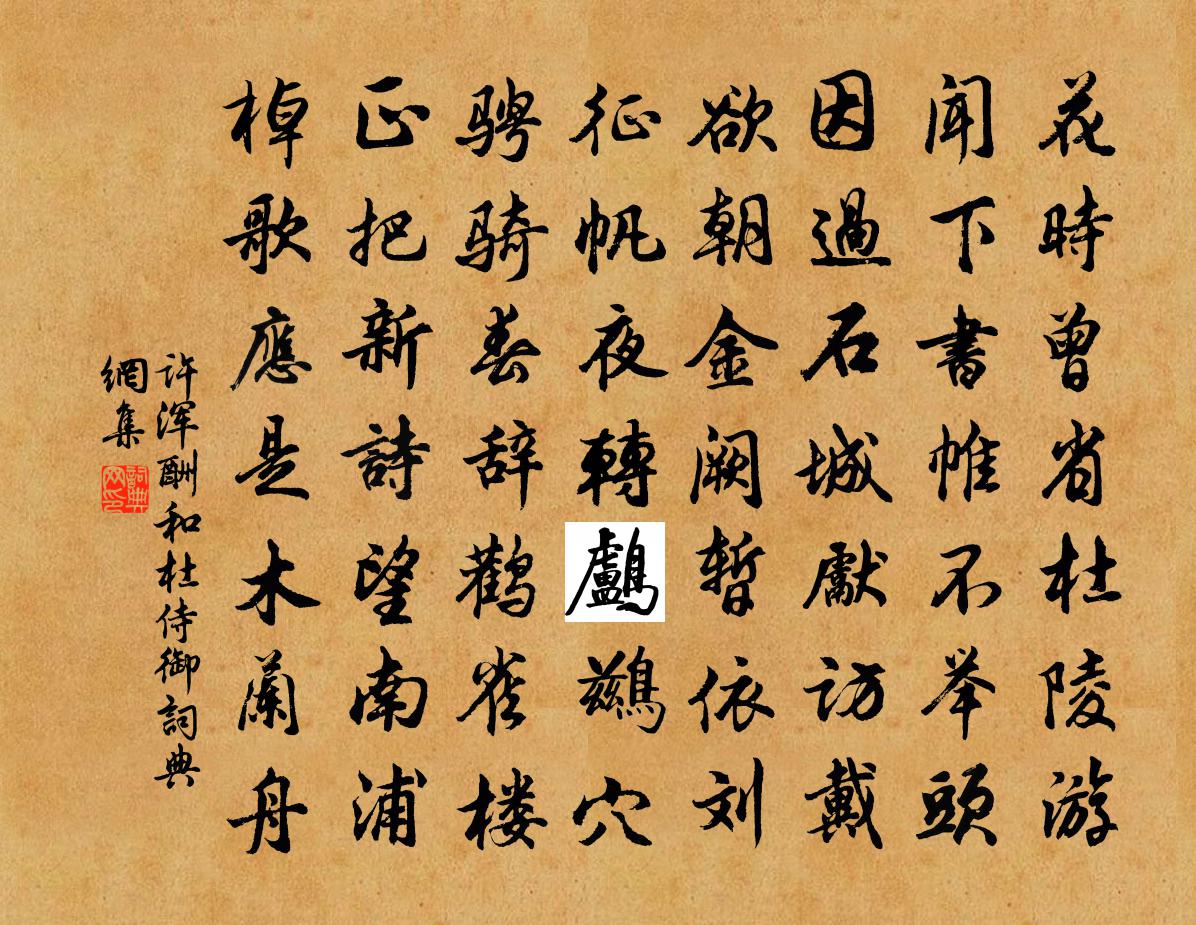 花時曾省杜陵游
闻下書帷不举頭
因過石城獻訪戴
欲朝金阙暫依刘
征帆夜轉鸕鷀穴
骋骑春辞鹳雀楼
正把新詩望南浦
棹歌應是木蘭舟
许浑酬和杜侍御詞典
網集
詞典
网印